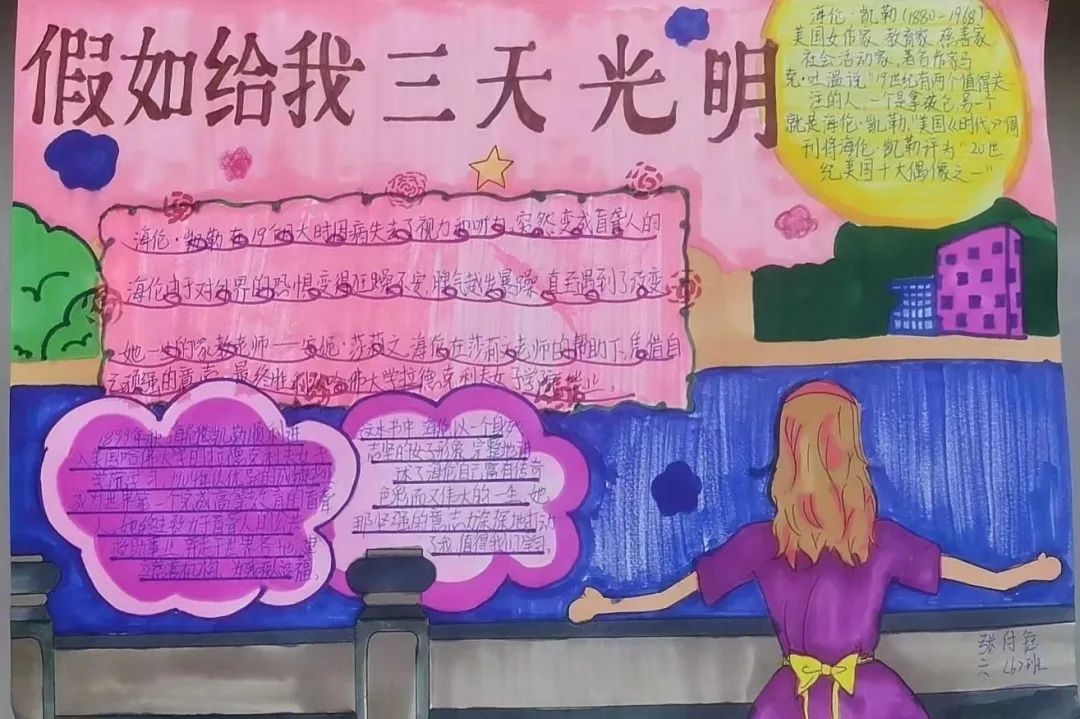 假如给我三天光明
海伦·凯勒(1880-1968)
美国女作家、教育家、慈善家、
社会活动家、著名作家马
克·吐温说"19世纪有两个值得关
注的人,一个是拿破仑,另一个
就是海伦·凯勒."美国《时代》周
刊将海伦·凯勒评为"20世
纪美国十大偶像之一"
海伦·凯勒在19个月大时因病失去了视力和听力,突然变成盲聋人的
海伦由于对外界的恐惧变得狂躁不安,脾气越出暴躁,直至遇到了改变
她一生的家教老师——安妮·莎莉文,海伦在莎莉文老师的帮助下,凭借自
己顽强的意志,最终胜利 佛大学拉德克利夫女子学院毕业。
1899年 海伦凯勒顺利进
入美国哈佛大学的拉德克利夫女子
学院学习,1904年以优异的成绩成
为世界第一个完成高等教育的盲聋
人,她终生致力于盲聋人的公共
救助事业,奔走于世界各地,建
慈善机构,为残疾人造福。
这本书中,海伦以一个身残
志坚的女子形象,完整地讲
述了海伦自己富有传奇
色彩而又伟大的一生,她
那坚强的意志力深深地打动
了我,值得我们学习。
张
六(6)班